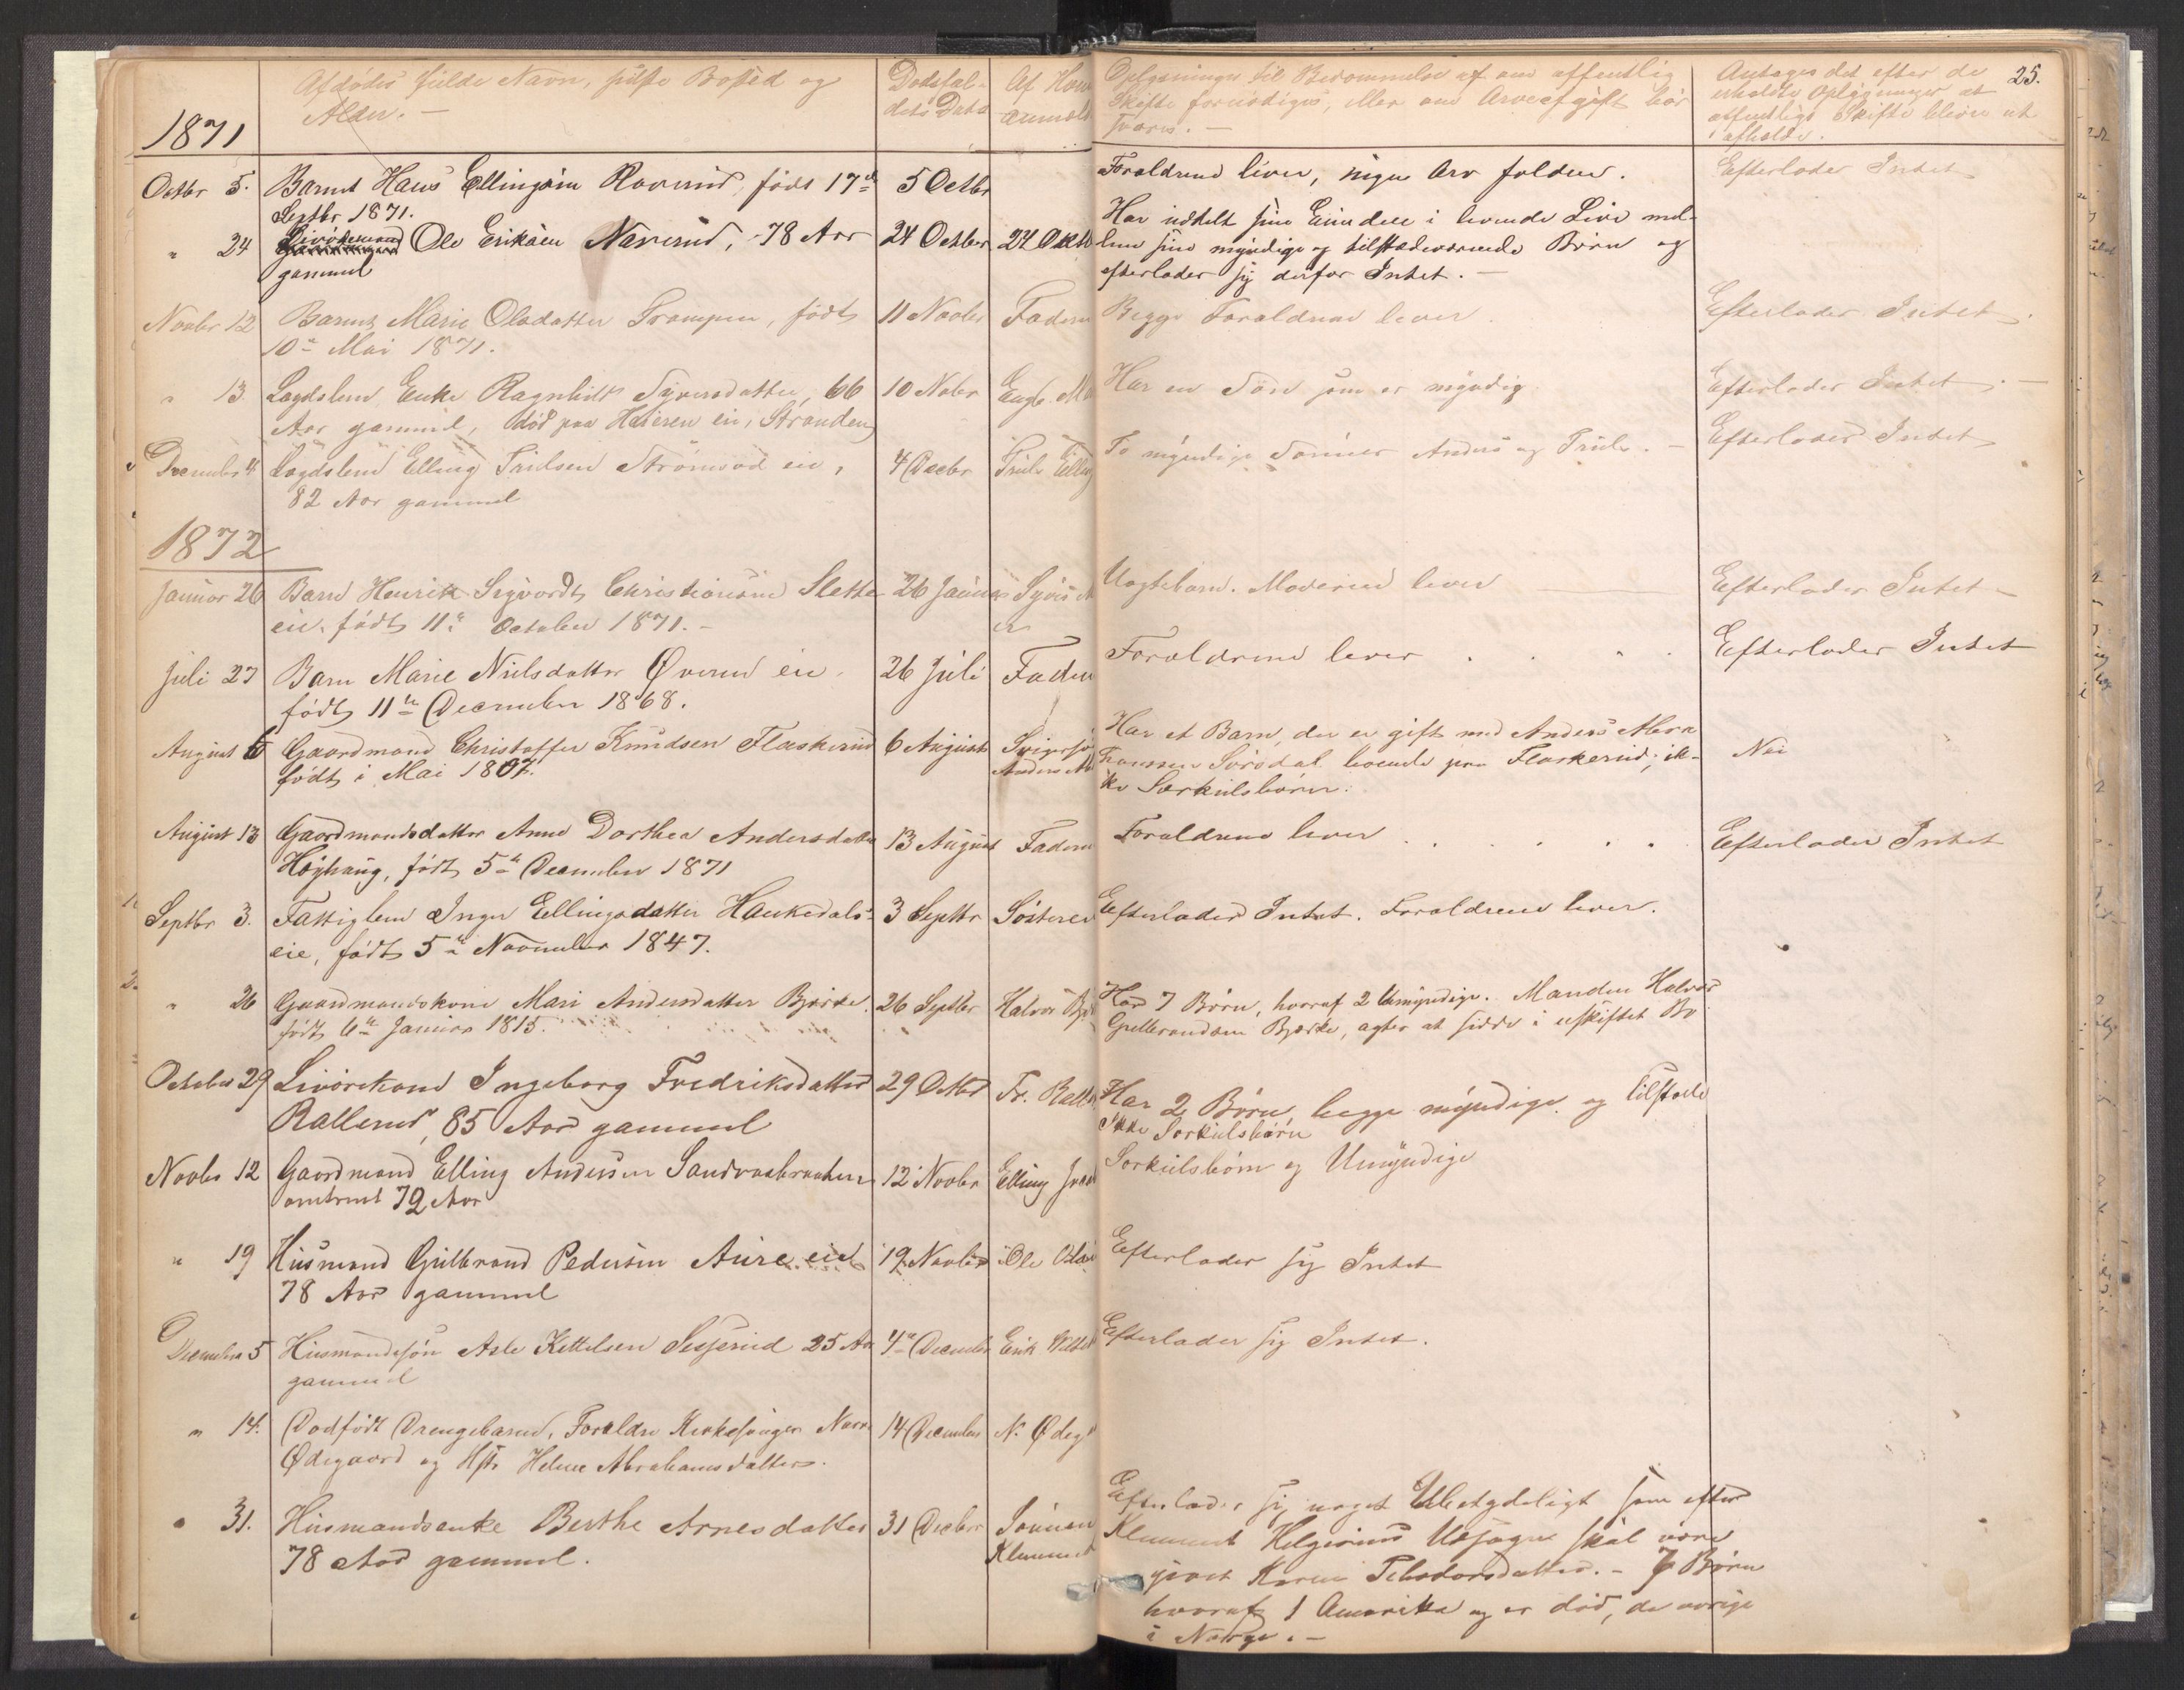 25.
Afdødes fulde Navn, sidste Bosted og
Alder. —
Dødsfal-
dets Dato
Af Hvem
anmeldt
Oplysninger til Bedømmelse af om offentlig
Skifte fornødiges, eller om Arveafgift bør
svares. —
Antages det efter de
erholdte Oplysninger at
offentligt Skifte bliver at
afholde.
1871
Octbr 5. Barnet Hans Ellingsen Raverud, født 17de 5 Octbr Forældrene lever, ingen Arv falden. Efterlader Intet
Septbr 1871.
" 24 Ole Eriksen Næverud, 78 Aar 24 Octber 24 Octb Har uddelt sine Eiendele i levende Live mel-
gammel
lem sine myndige og tilstedeværende Børn og
efterlader sig derfor Intet. —
Novbr 12 Barnet Marie Olsdatter Trampen, født 11 Novbr Faderen Begge Forældrene lever. Efterlader Intet.
10de Mai 1871.
" 13. Lægdslem Enke Ragnhild Syversdatter, 66 10 Nobr Har en Søn som er myndig. Efterlader Intet. —
Aar gammel, død paa eie, Stranden
December 4 Lægdslem Elling Truelsen Strømsod eie, 4 Decbr Truls Elling To myndige Sønner Anders og Truls. — Efterlader Intet
82 Aar gammel
1872
Januar 26 Barn Henrik Sigvardt Christiansen Slette 26 Januar Uægtebarn. Moderen lever Efterlader Intet —
eie, født 11te October 1871. —
Juli 27 Barn Marie Nielsdatter Øverud eie. 26 Juli Faderen Forældrene lever . . . . Efterlader Intet
født 11te December 1868.
August 6 Gaardmand Christoffer Knudsen Flaskerud 6 August Svigersøn Har et Barn, der er gift med Anders Abra
født i Mai 1807. Anders Ab hamssen Sørsdal boende paa Flaskerud; ik- Nei
ke Særkulsbørn.
August 13 Gaardmandsdatter Anne Dorthea Andersdatter 13 August Faderen Forældrene lever . . . . . Efterlader Intet
Høghaug, født 5te December 1871
Septbr 3. Fattiglem Inger Ellingsdatter Haukedals- 3 Septbr Søsteren Efterlader Intet. Forældrene lever.
eie, født 5te November 1847.
" 26 Gaardmandskone Mari Andersdatter Bjerke. 26 Septbr Halvor Bje Har 7 Børn, hvoraf 2 Umyndige. Manden Halvor
født 6te Januar 1815. Gulbrandsen Bjerke, agter at sidde i uskiftet Bo
October 29 Livørekone Ingeborg Fredriksdatter 29 Octbr Fr. Rall Har 2 Børn, begge myndige og tilstede
Rallerud, 85 Aar gammel Ikke Særkulsbørn
Novbr 12 Gaardmand Elling Andersen Sandvasbraaten 12 Novbr Elling Særkulsbørn og Umyndige
omtrent 72 Aar
" 19 Husmand Gulbrand Pedersen Aure eie 19 Novber Ole Olsen Efterlader sig Intet
78 Aar gammel
December 5 Husmandssøn Asle Kittelsen Sesserud 25 Aar 4de December Erik Efterlader sig Intet.
gammel
" 14. Dødfødt Drengebarn, Forældre Kirkesanger 14 December N. Ødeg
Ødegaard og Hstr Helene Abrahamsdatter.
" 31. Husmandsenke Berthe Arnesdatter 31 Decbr Sønnen Efterlader sig noget Ubetydeligt som efter
78 Aar gammel. Klemmet Klemmet Helgerud Udsagn skal være
givet Karen Theodorsdatter. — 7 Børn
hvoraf 1 Amerika og er død, de øvrige
i Norge. —